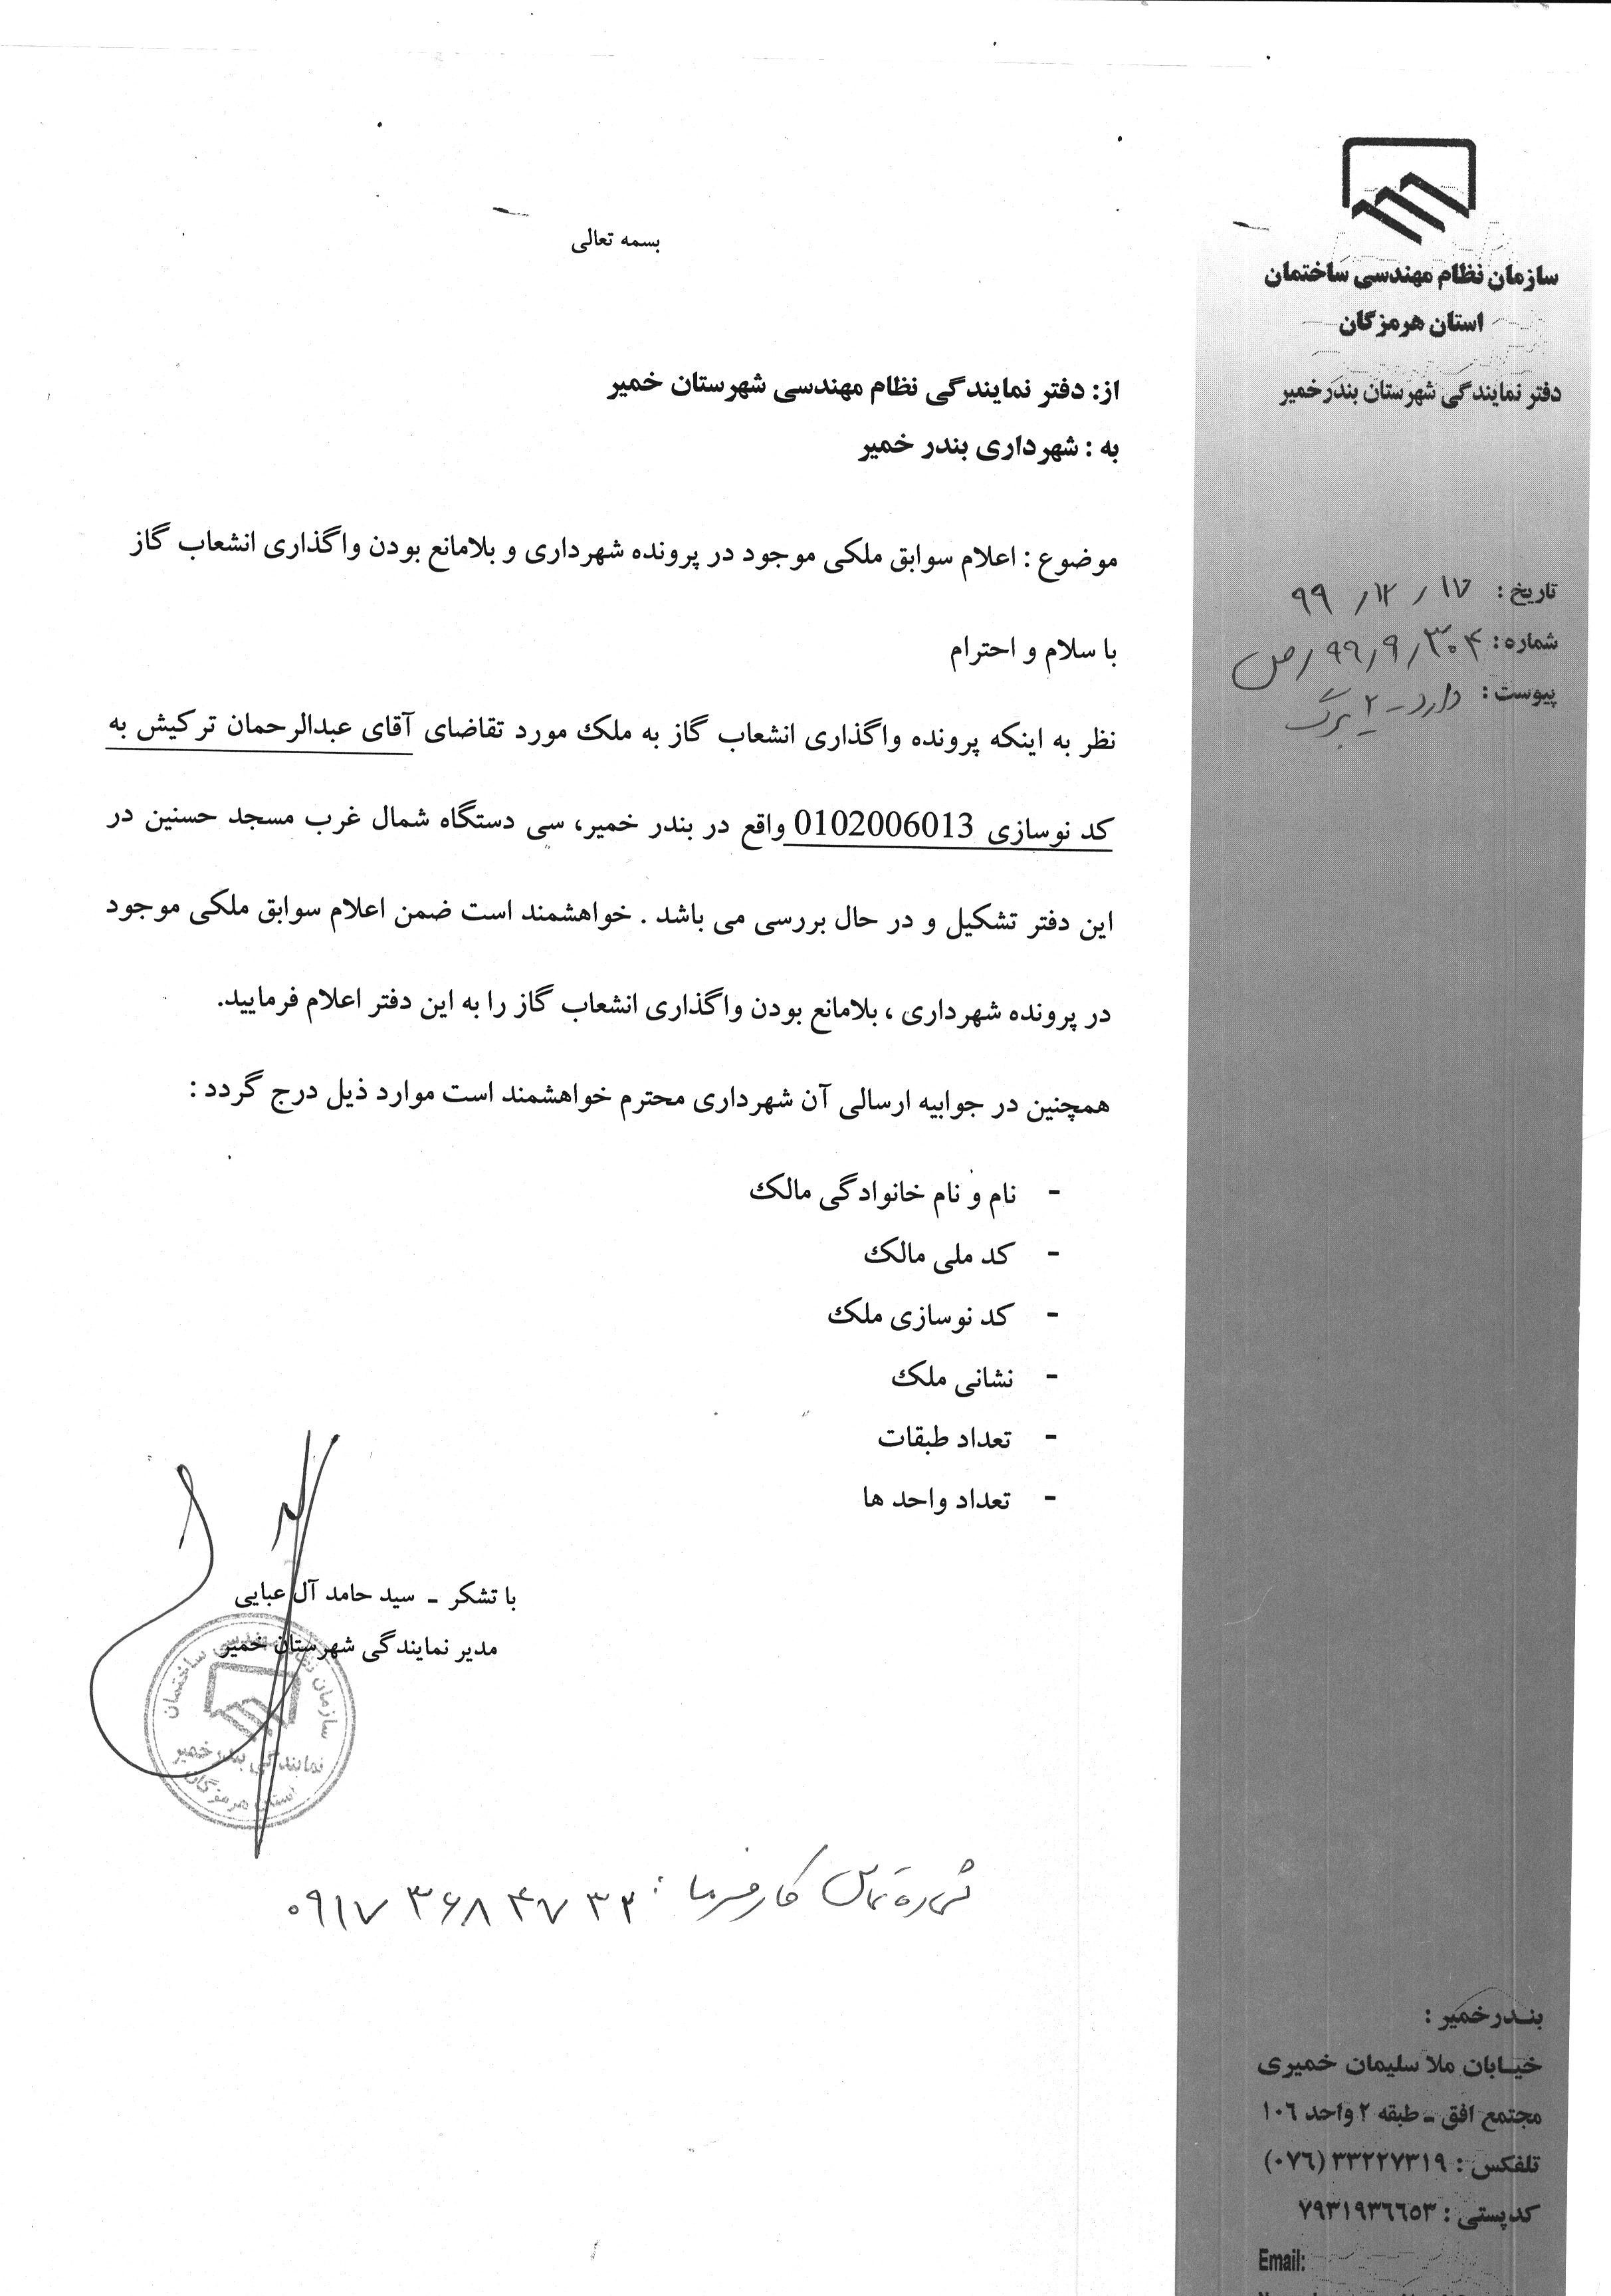 سازمان نظام مهندسی ساختمان
استان هرمزگان
دفتر نمایندگی شهرستان بندرخمیر
تاریخ : ۹۹ / ۱۲ / ۱۷
شماره : ۳۰۴ / ۹ / ۹۹ / ص
پیوست : دارد - ۲ برگ
بسمه تعالی
از: دفتر نمایندگی نظام مهندسی شهرستان خمیر
به : شهرداری بندر خمیر
موضوع : اعلام سوابق ملکی موجود در پرونده شهرداری و بلامانع بودن واگذاری انشعاب گاز
با سلام و احترام
نظر به اینکه پرونده واگذاری انشعاب گاز به ملک مورد تقاضای آقای عبدالرحمان ترکیش به
کد نوسازی 0102006013 واقع در بندر خمیر، سی دستگاه شمال غرب مسجد حسنین در
این دفتر تشکیل و در حال بررسی می باشد . خواهشمند است ضمن اعلام سوابق ملکی موجود
در پرونده شهرداری ، بلامانع بودن واگذاری انشعاب گاز را به این دفتر اعلام فرمایید.
همچنین در جوابیه ارسالی آن شهرداری محترم خواهشمند است موارد ذیل درج گردد :
- نام و نام خانوادگی مالک
- کد ملی مالک
- کد نوسازی ملک
- نشانی ملک
- تعداد طبقات
- تعداد واحد ها
با تشکر - سید حامد آل عبایی
مدیر نمایندگی شهرستان خمیر
سازمان نظام مهندسی ساختمان
نمایندگی بندر خمیر
استان هرمزگان
شماره تماس کارفرما : ۰۹۱۷ ۳۶۸ ۴۷ ۳۲
بندرخمیر :
خیابان ملا سلیمان خمیری
مجتمع افق - طبقه ۲ واحد ۱۰۶
تلفکس : ۳۳۲۲۷۳۱۹ (۰۷۶)
کدپستی : ۷۹۳۱۹۳۶۶۵۳
Email: